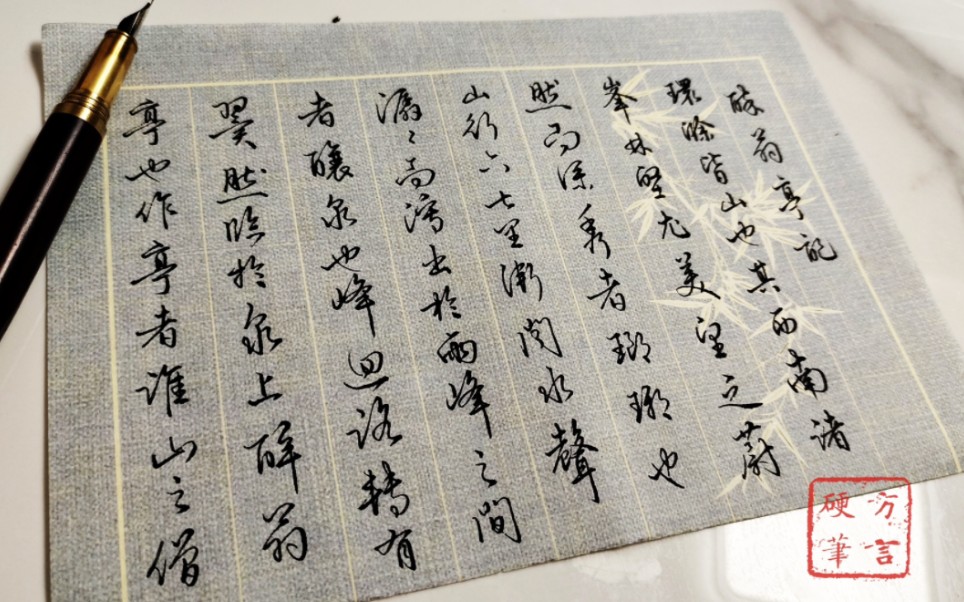 醉翁亭記
環滁皆山也其西南諸
峯林壑尤美望之蔚
然而深秀者瑯琊也
山行六七里漸聞水聲
潺〻而瀉出於兩峰之間
者釀泉也峰迴路轉有
翼然臨於泉上醉翁
亭也作亭者誰山之僧
方言
硬筆